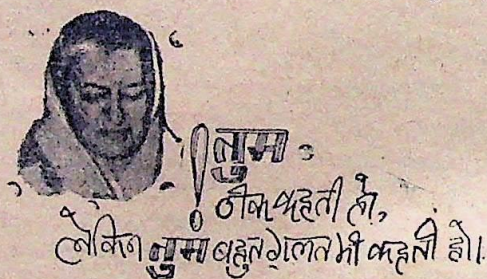 ! तुम.
ठीक कहती हो,
लेकिन तुम बहुत ग़लत भी कहती हो।